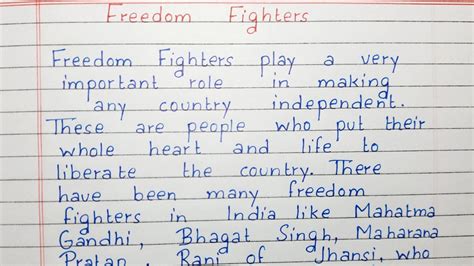 Freedom Fighters
Freedom Fighters play a very
important role in making
any country independent.
These are people who put their
whole heart and life to
liberate the country. There
have been many freedom
fighters in India like Mahatma
Gandhi, Bhagat Singh, Maharana
Pratap, Rani of Jhansi, who